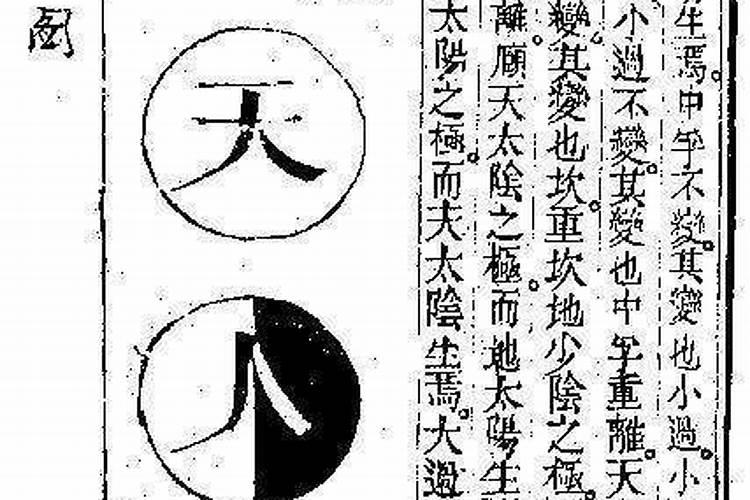 生焉。中孚不變。其變也小過。小
小過不變。其變也中孚重離。天
變其變也坎。重坎地少陰之極。
離。頤天太陰之極。而地太陽生
太陽之極。而天太陰生焉。大過
天
人